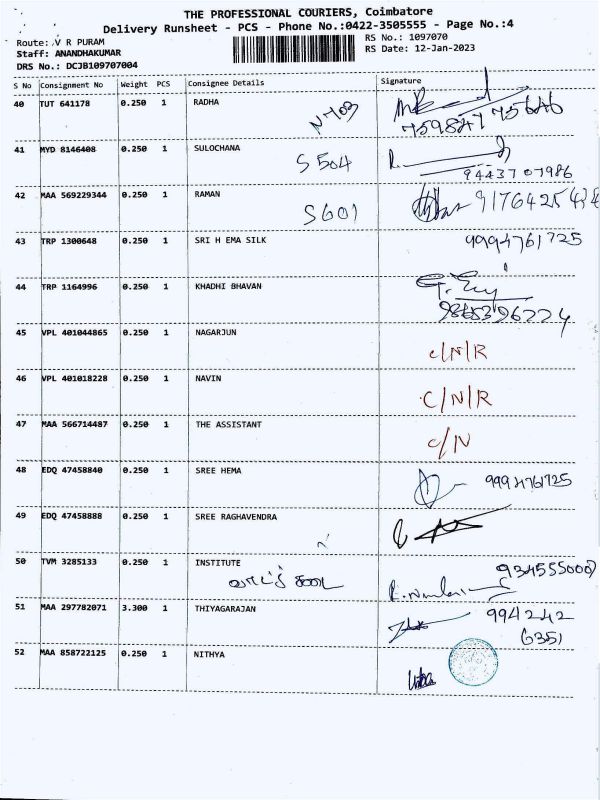 THE PROFESSIONAL COURIERS, Coimbatore
Delivery Runsheet - PCS - Phone No.:0422-3505555 - Page No.:4
Route: V R PURAM RS No.: 1097070
Staff: ANANDHAKUMAR RS Date: 12-Jan-2023
DRS No.: DCJB109707004
S No Consignment No Weight PCS Consignee Details Signature
40 TUT 641178 0.250 1 RADHA
N 703
75984775646
41 MYD 8146408 0.250 1 SULOCHANA
S 504
9443707986
42 MAA 569229344 0.250 1 RAMAN
S601 9176425434
43 TRP 1300648 0.250 1 SRI H EMA SILK 9994761725
44 TRP 1164996 0.250 1 KHADHI BHAVAN
9865396224
45 VPL 401044865 0.250 1 NAGARJUN
C/N/R
46 VPL 401018228 0.250 1 NAVIN
C/N/R
47 MAA 566714487 0.250 1 THE ASSISTANT
C/N
48 EDQ 47458840 0.250 1 SREE HEMA 9994761725
49 EDQ 47458888 0.250 1 SREE RAGHAVENDRA
50 TVM 3285133 0.250 1 INSTITUTE 9345550007
51 MAA 297782071 3.300 1 THIYAGARAJAN 994242
6351
52 MAA 858722125 0.250 1 NITHYA